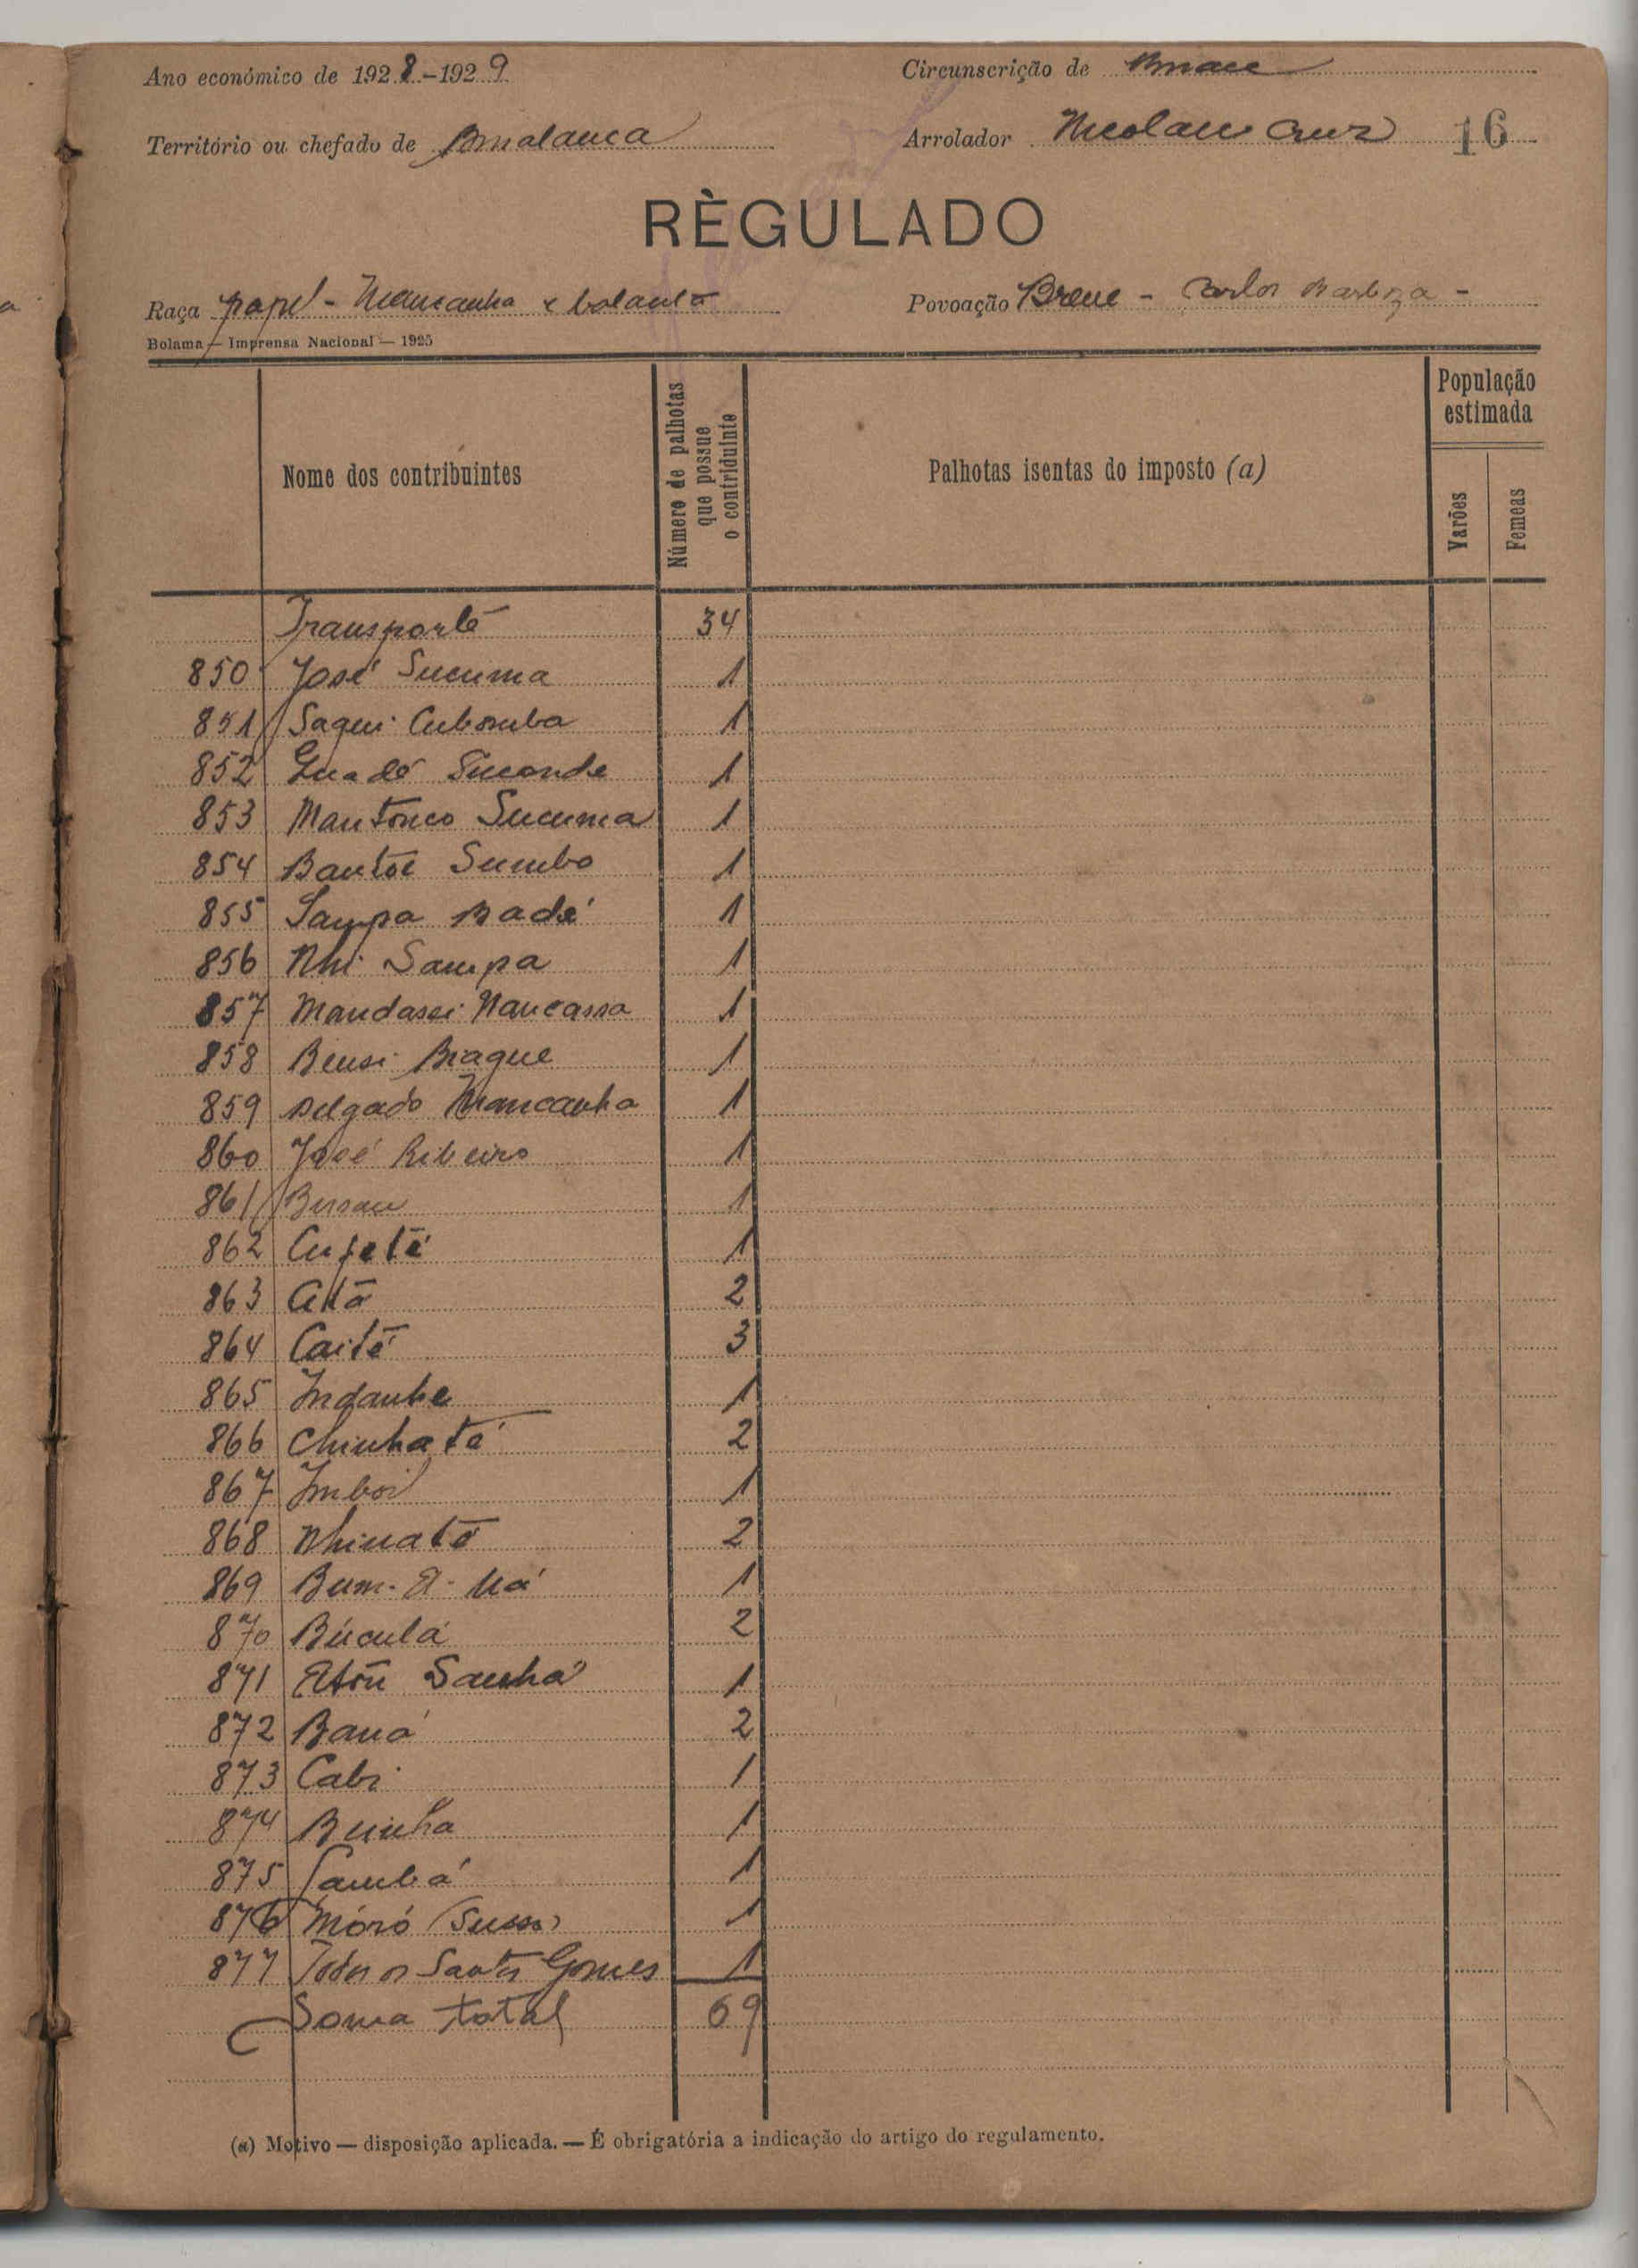 Ano económico de 1928-1929
Circunscrição de Bissau
Território ou chefado de Bissalanca
Arrolador Nicolau Cruz 16
RÈGULADO
Raça papel - Mancanha e balanta
Povoação Brene - Carlos Barboza -
Bolama — Imprensa Nacional — 1925
Nome dos contribuintes
Número de palhotas que possue o contriduinte
Palhotas isentas do imposto (a)
População estimada
Varões
Femeas
Transporte 34
850 José Sucuma 1
851 Saqui Cubomba 1
852 1
853 Mantonco Sucuma 1
854 Bantoi Sumbo 1
855 Sampa Badé 1
856 Nhi Sampa 1
857 Mandasei Nancassa 1
858 Bensi Biague 1
859 Delgado Mancanha 1
860 José Ribeiro 1
861 Bissau 1
862 Cufeté 1
863 2
864 Caité 3
865 1
866 Chinhaté 2
867 Imboi 1
868 Nhinató 2
869 Bum-A-Ná 1
870 Búculá 2
871 Sanhá 1
872 Baná 2
873 Cabi 1
874 Buinha 1
875 Sambá 1
876 Móró (Susso) 1
877 Todos os Santos Gomes 1
Soma total 69
(a) Motivo — disposição aplicada. — É obrigatória a indicação do artigo do regulamento.